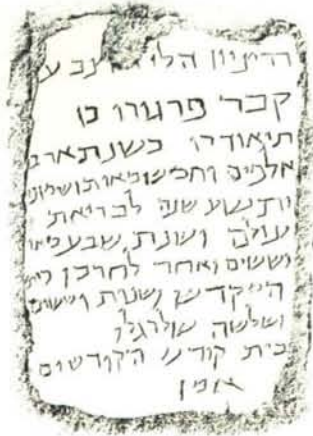 קבר פרגורו בן
תיאודרו בשנת ארב
אלפים וחמש מאות ושמונ
ותשע שנה לבריאת
עולם ושנת שבע מאו
וששים ואחד לחרבן בית
המקדש ושנות
ושלשה
בית קודש הקודשים
אמן